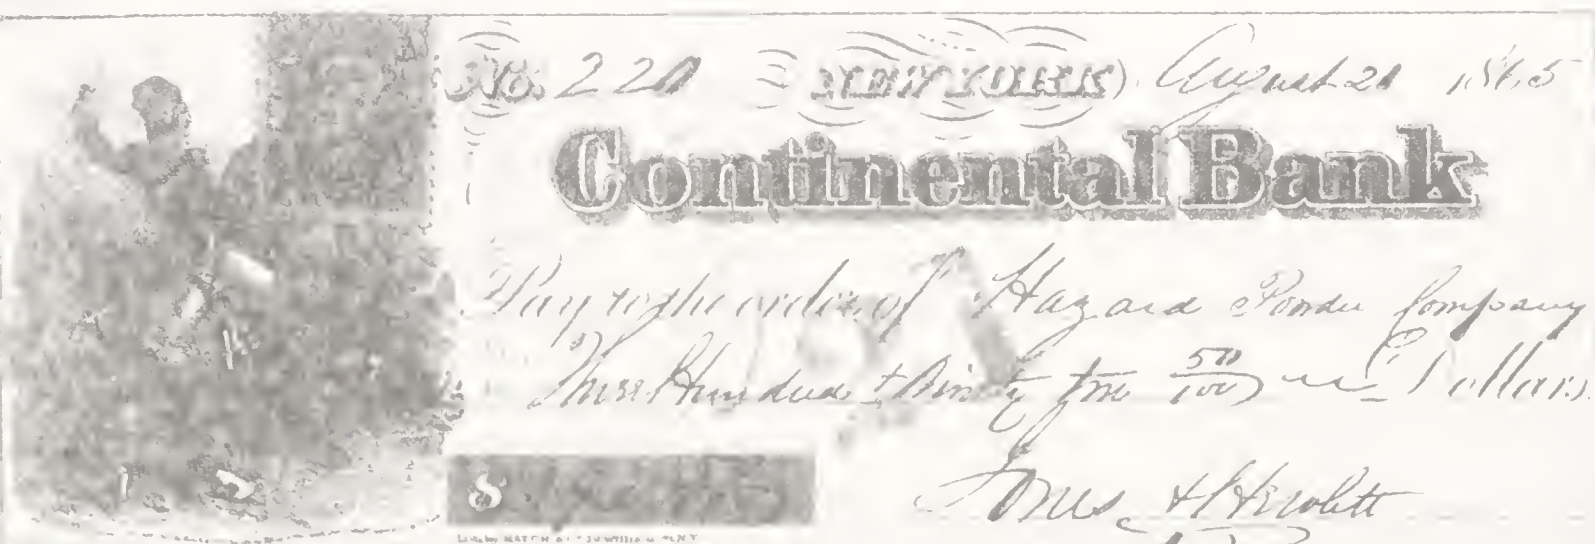 No. 220 NEW YORK, August 21 1865
Continental Bank
Pay to the order of Hazard Powder Company
Three Hundred & Ninety 50/100 Dollars
$
& Hewlett